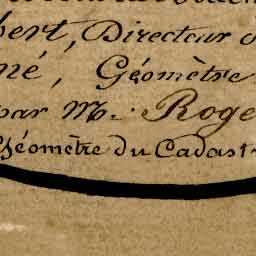 bert, Directeur
né, Géomètre
par M. Roge
Géomètre du Cadast